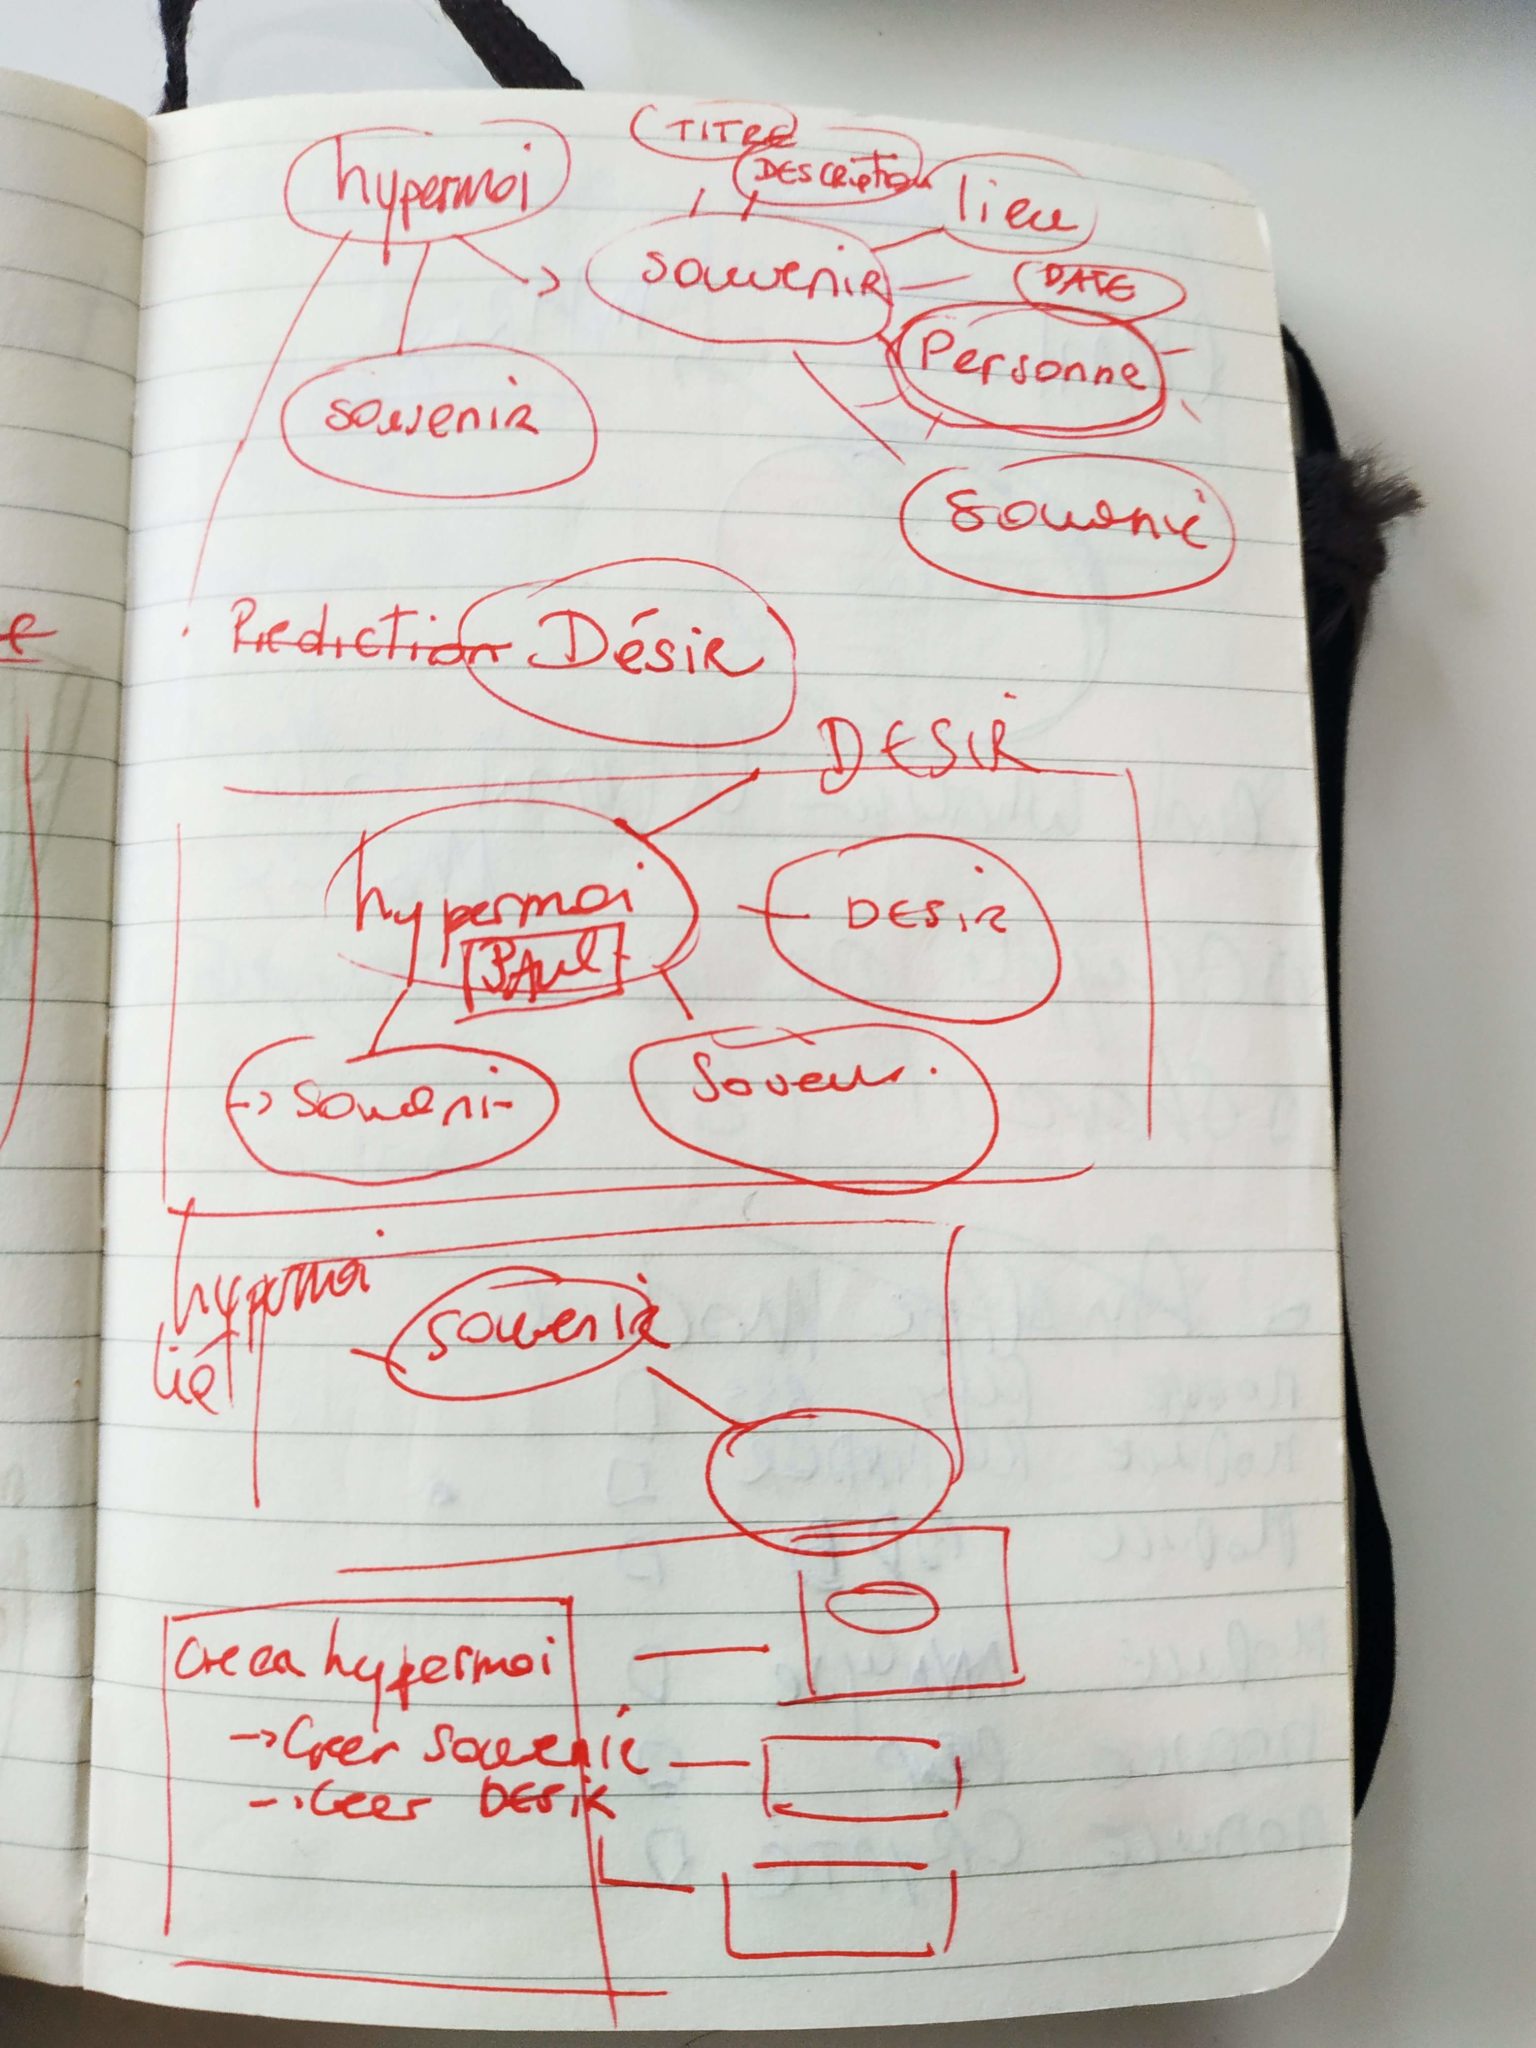 hypermoi
TITRE
DESCRIPTION
lieu
souvenir
DATE
Personne
souvenir
souvenir
Prediction Désir
DESIR
hypermoi
PAUL
DESIR
-> souveni-
hypermoi
lié
souvenir
Creer hypermoi
-> Creer souvenir
-> Creer DESIR